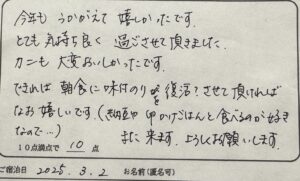 今年も うかがえて 嬉しかったです。
とても 気持ち良く 過ごさせて頂きました。
カニも 大変おいしかったです。
できれば 朝食に味付のりを復活?させて頂ければ
なお嬉しいです。(納豆や卵かけごはんと食べるのが好き
なので…) また来ます。よろしくお願いします。
10点満点で 10 点
ご宿泊日 2025.3.2 お名前(匿名可)